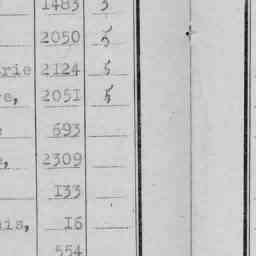 1483 5
2050 5
rie 2124 5
e, 2051 5
693
, 2309
133
is, 16
554